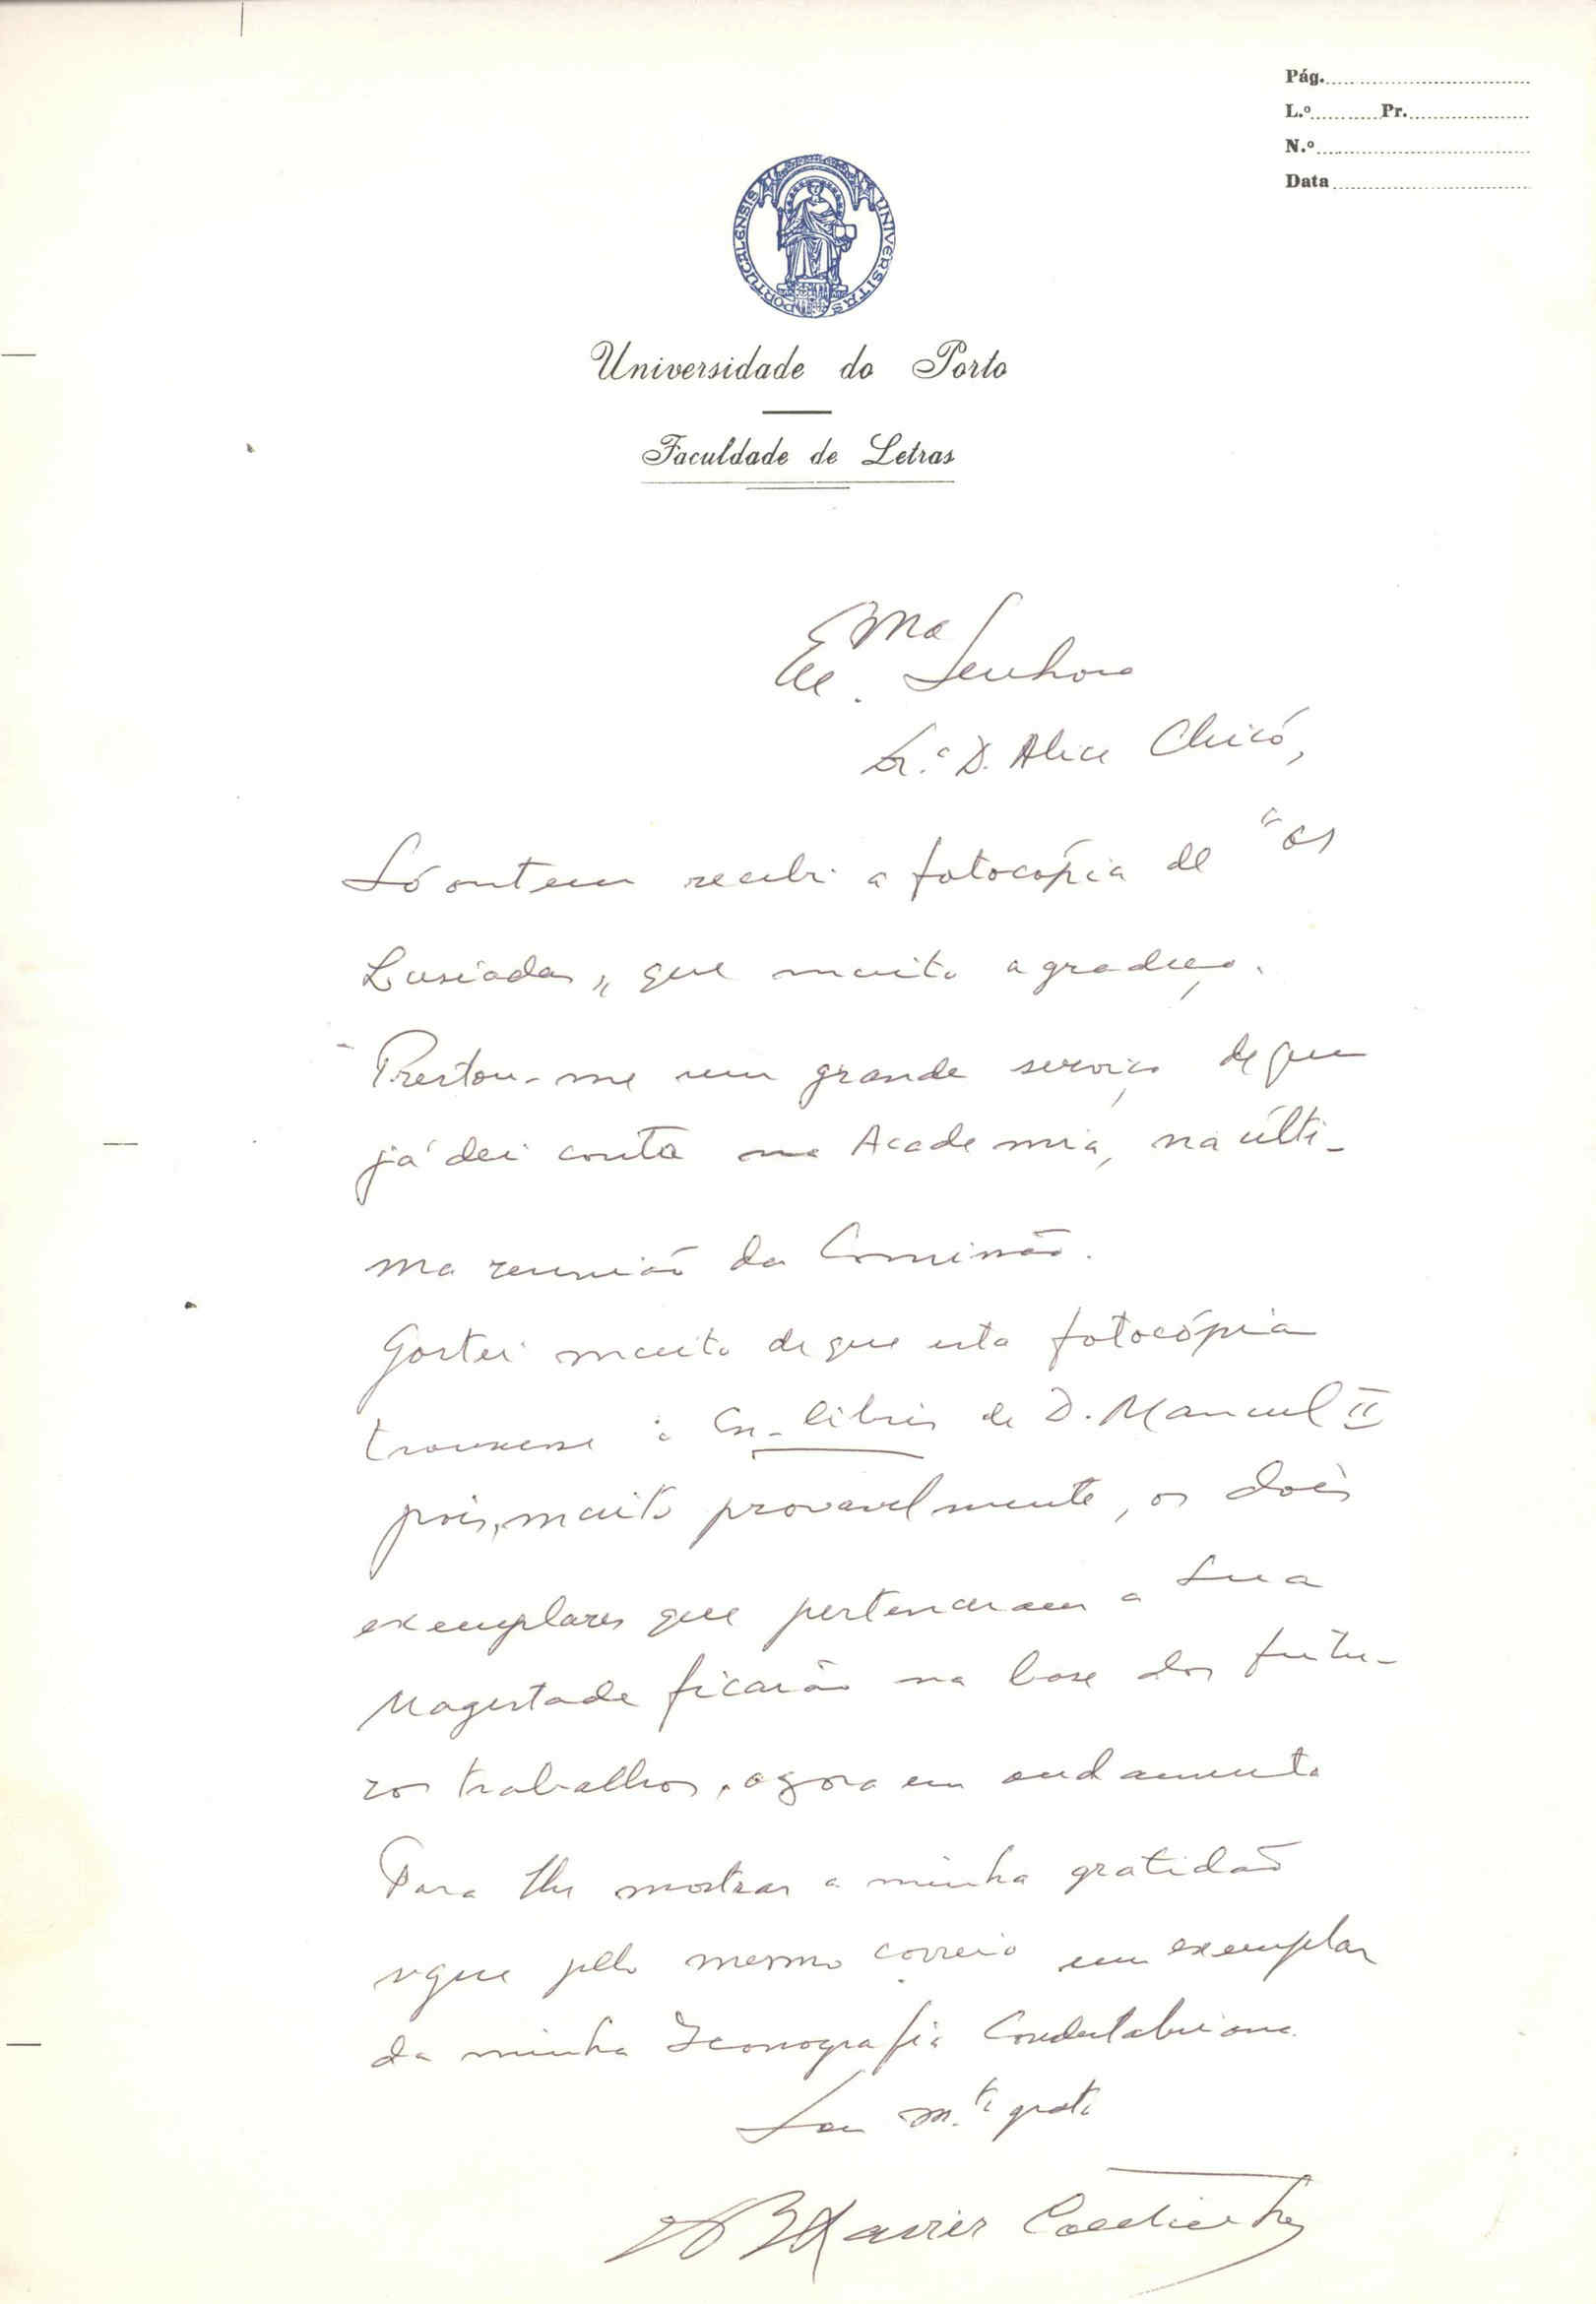 Pág.
L.º Pr.
N.º
Data
PORTUCALENSIS UNIVERSITAS
Universidade do Porto
Faculdade de Letras
Ex.ma Senhora
Dr.ª D. Alice Chicó,
Só ontem recebi a fotocópia de "Os
Lusiadas", que muito agradeço.
Prestou-me um grande serviço de que
já dei conta na Academia, na últi-
ma reunião da Comissão.
Gostei muito de que esta fotocópia
trouxesse o Ex-libris de D. Manuel II
pois, muito provavelmente, os dois
exemplares que pertenceram a Sua
Magestade ficarão na base dos futu-
ros trabalhos, agora em andamento
Para lhe mostrar a minha gratidão
segue pelo mesmo correio um exemplar
da minha Iconografia Condestabriana.
Sou m.to grato
B Xavier Coutinho